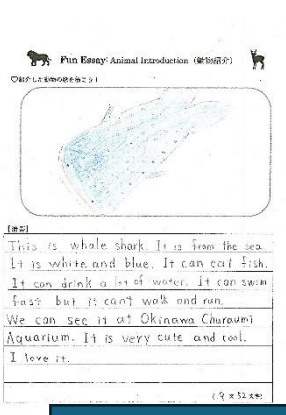 Fun Essay: Animal Introduction (動物紹介)
♡紹介した動物の絵を描こう!
【清書】
This is whale shark. It is from the sea.
It is white and blue. It can eat fish.
It can drink a lot of water. It can swim
fast but it can't walk and run.
We can see it at Okinawa Churaumi
Aquarium. It is very cute and cool.
I love it.
(9 文 52 文字)